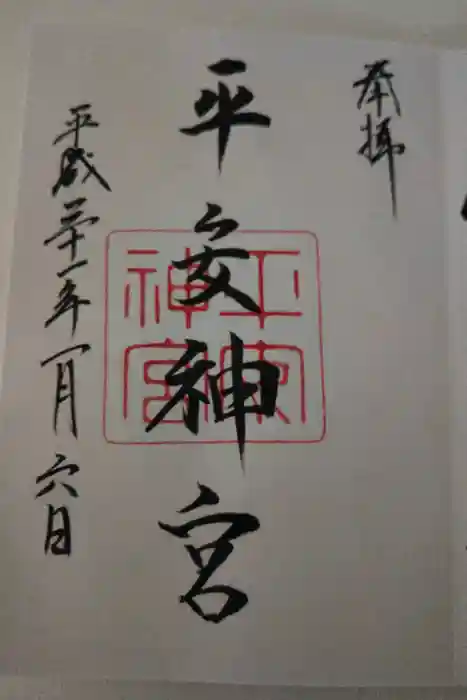 奉拝
平安神宮
平安神宮
平成三十一年一月六日